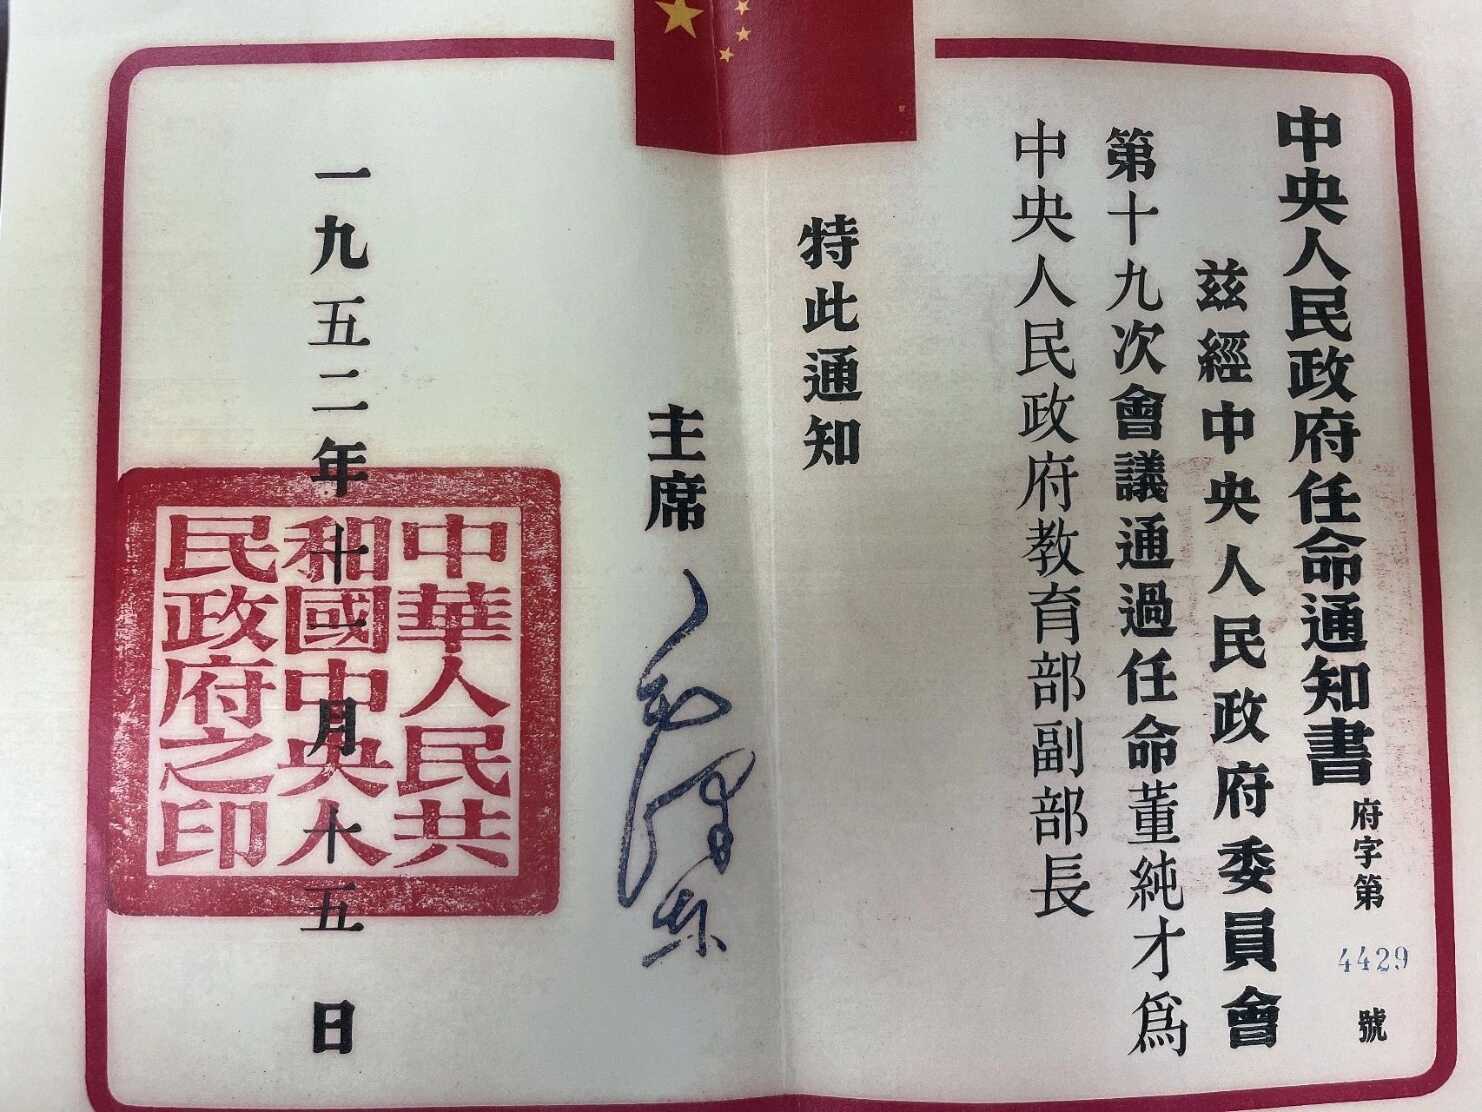 中央人民政府任命通知書
府字第4429號
兹經中央人民政府委員會
第十九次會議通過任命董純才爲
中央人民政府教育部副部長
特此通知
主席 毛泽东
一九五二年十一月十五日
中華人民共
和國中央人
民政府之印